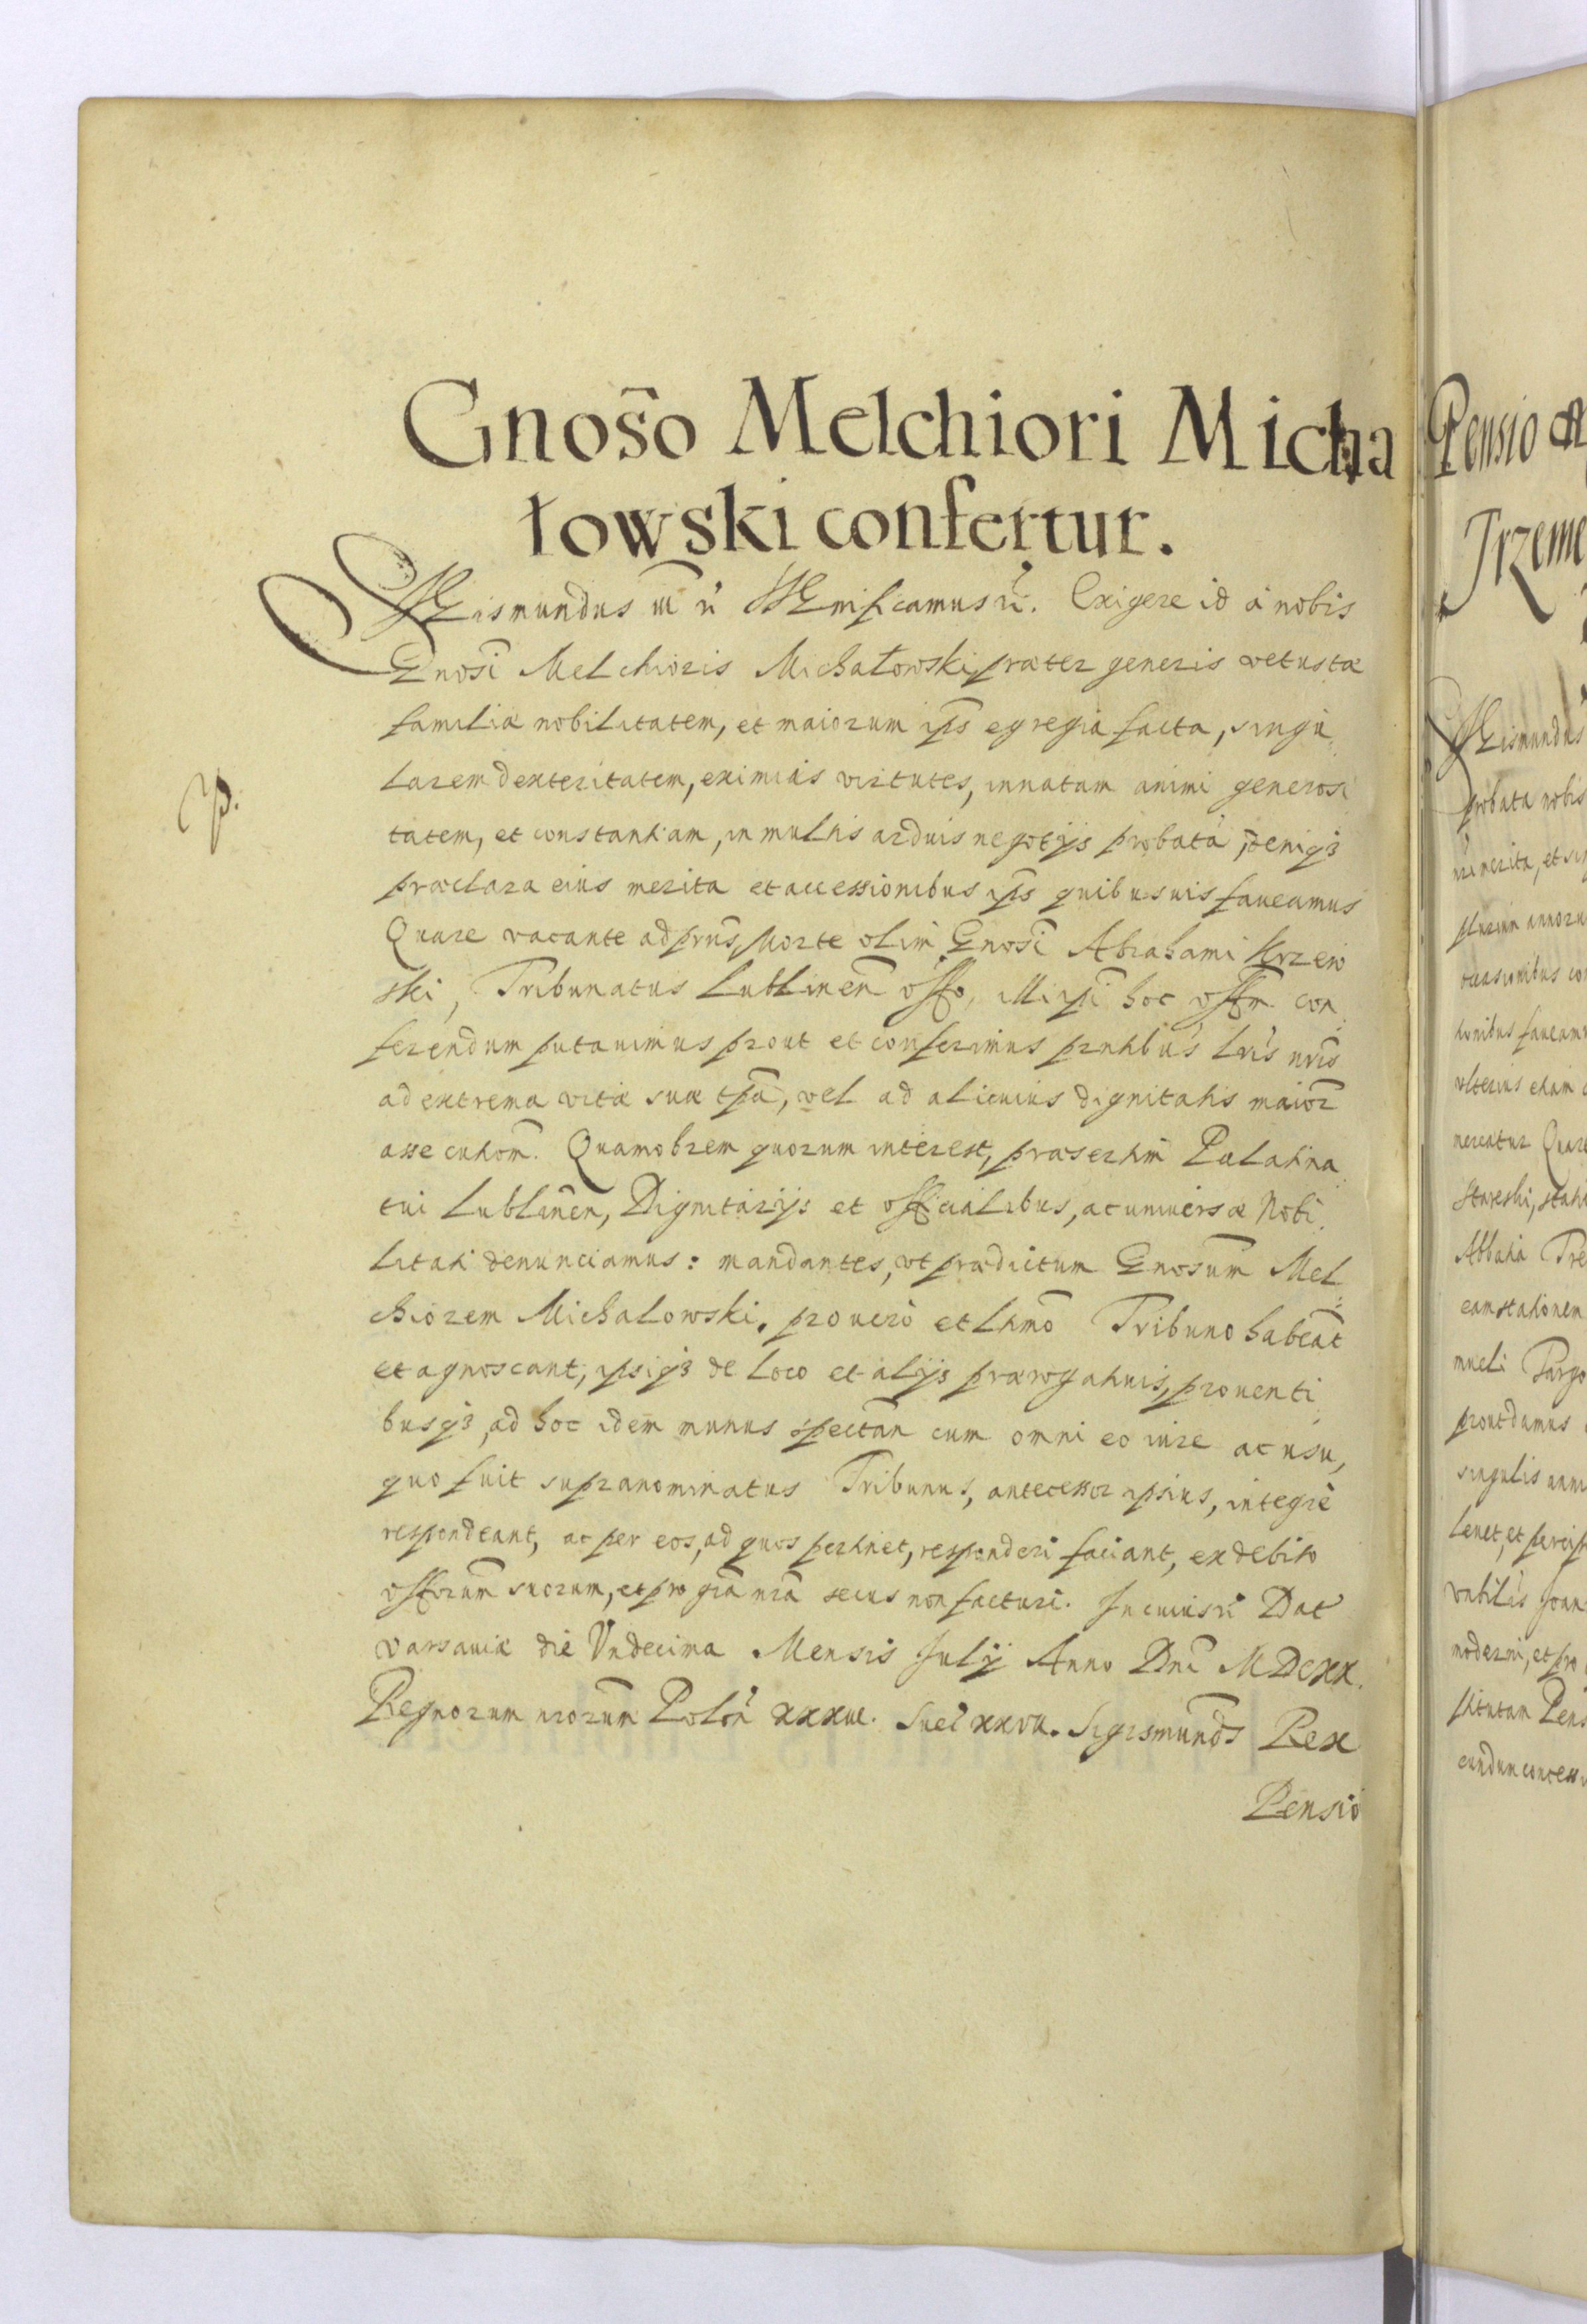 Gnoso Melchiori Micha
łowski confertur.
Sigismundus III etc. Significamus etc. Exigere id a nobis
Gnosi Melchioris Michałowski, præter generis vetustæ
familiæ nobilitatem, et maiorum ips egregia facta, singu
larem dexteritatem, eximias virtutes, innatam animi generosi
tatem, et constantiam, in multis arduis negotijs probatã, deniqz
præclara eius merita et accessionibus ips quibusuis faueamus
Quare vacante ad prns, morte olim Gnosi Abrahami Krzew
ski, Tribunatus Lublinen offo, illi ipi hoc offm con
ferendum putauimus prout et conferimus pntibus lris nris
ad extrema vitæ suæ tpa, vel ad alicuius dignitatis maior
assecutiom. Quamobrem quorum interest, præsertim Palatina
tui Lublinen, Dignitarijs et officialibus, ac uniuersæ Nobi
litati denunciamus: mandantes, vt prædictum Gnosum Mel
chiorem Michalowski, pro uero et ltimo Tribuno habeãt
et agnoscant, ipsiqz de loco et alijs prærogatiuis, prouenti
busqz, ad hoc idem munus spectan cum omni eo iure ac usu,
quo fuit supranominatus Tribunus, antecessor ipsius, integrè
respondeant, ac per eos, ad quos pertinet, responderi faciant, ex debito
offiorum suorum, et pro gra nra secus non facturi. In cuius rei Dat
Varsauiæ die Vndecima Mensis Julij Anno Dni MDCXX.
Regnorum nrorum Polon XXXIII. Suet XXVII. Sigismunds Rex
Pensio
p.
Pensio
Trzeme
Sigismundus
probata nobis
merita, et sin
plurium annorum
occasionibus
tionibus faueamus
vlterius etiam
mereatur Quare
Abbatia Tre
eam stationem
mueli Targo
prout damus
singulis
tenet, et percip
Joan
moderni, et pro
Pens